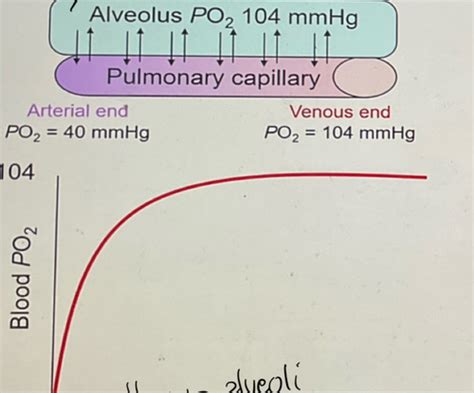 Alveolus PO₂ 104 mmHg
Pulmonary capillary
Arterial end
PO₂ = 40 mmHg
Venous end
PO₂ = 104 mmHg
104
Blood PO₂
alveoli